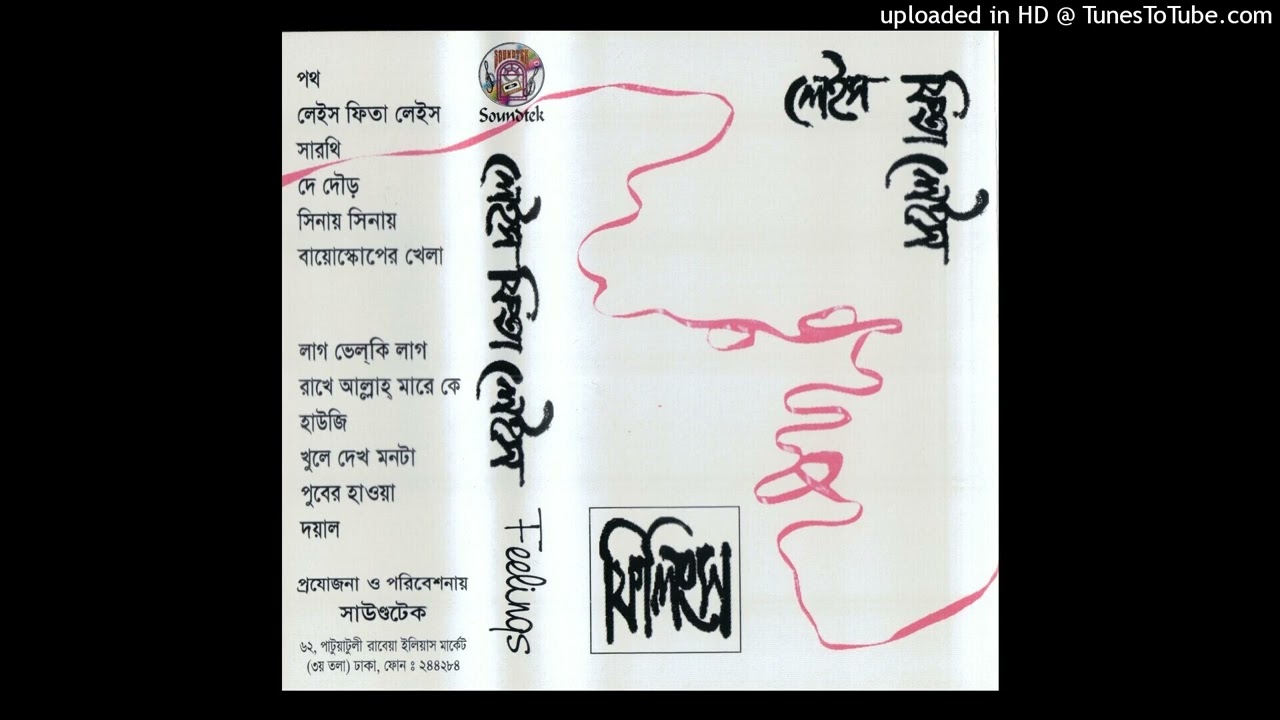 uploaded in HD @ TunesToTube.com
পথ
লেইস ফিতা লেইস
সারথি
দে দৌড়
সিনায় সিনায়
বায়োস্কোপের খেলা
লাগ ভেল্‌কি লাগ
রাখে আল্লাহ্ মারে কে
হাউজি
খুলে দেখ মনটা
পুবের হাওয়া
দয়াল
প্রযোজনা ও পরিবেশনায়
সাউণ্ডটেক
৬২, পাটুয়াটুলী রাবেয়া ইলিয়াস মার্কেট
(৩য় তলা) ঢাকা, ফোন ঃ ২৪৪২৮৪
SOUNDTEK
Soundtek
লেইস ফিতা লেইস Feelings
লেইস
ফিতা লেইস
ফিলিংস